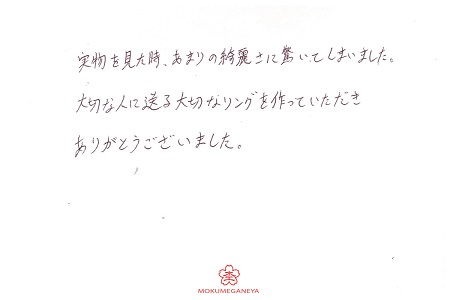 実物を見た時、あまりの綺麗さに驚いてしまいました。
大切な人に送る大切なリングを作っていただき
ありがとうございました。
MOKUMEGANEYA